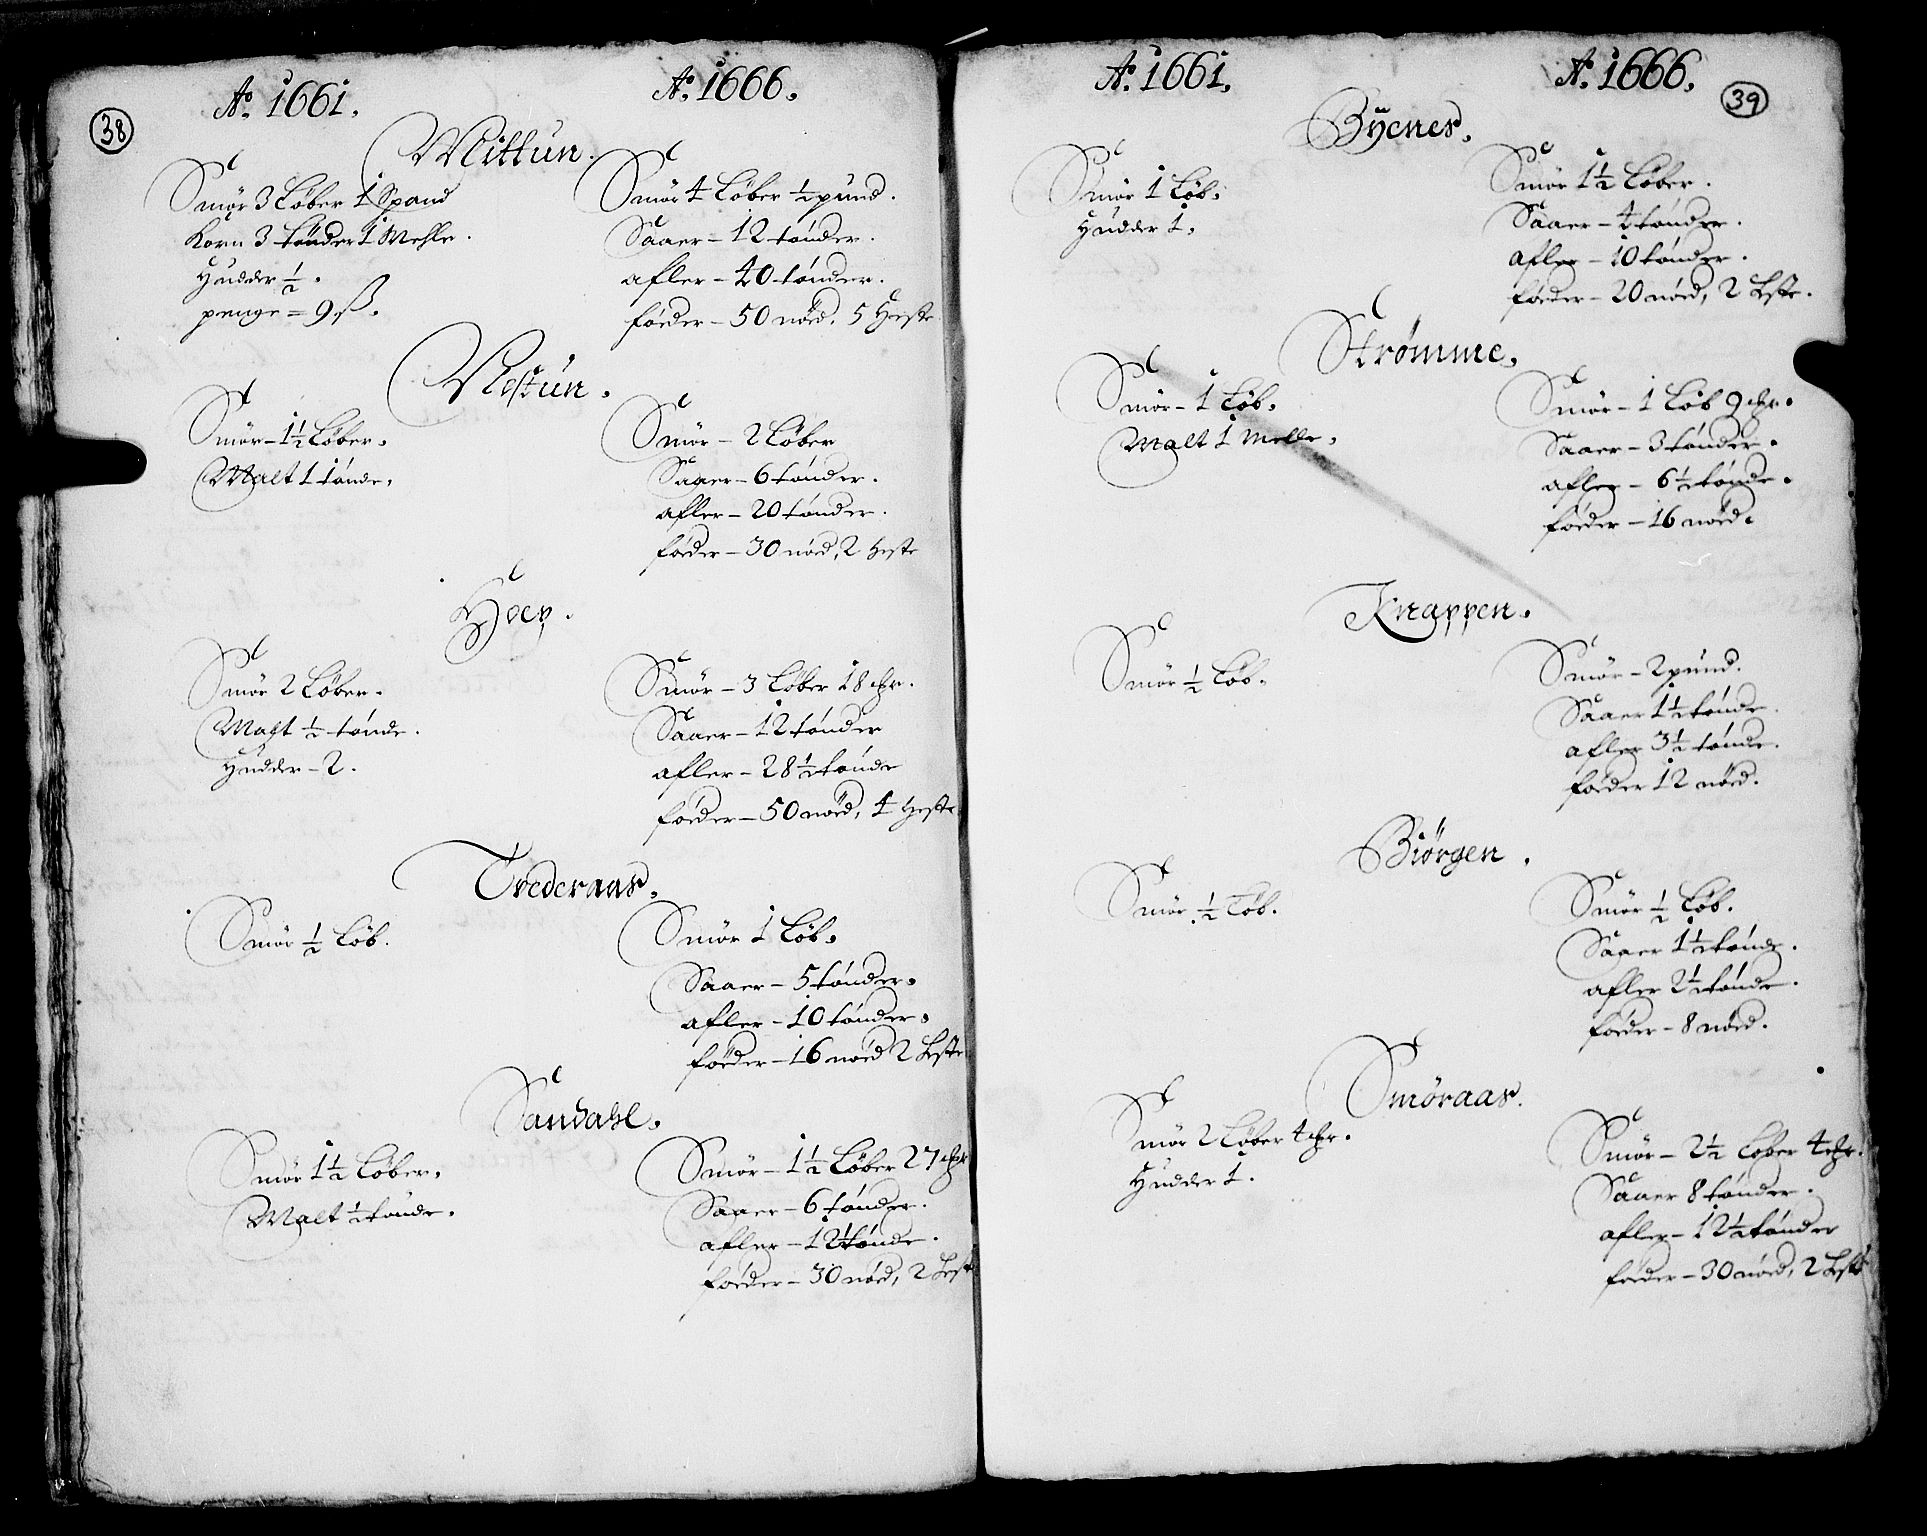 38
Ao. 1661. Ao. 1666.
Mittun.
Smör 3 Löber 1 Spand
Korn 3 tönder 1 Mehle.
Hudder ½.
penge = 9 ß.
Smör 4 Löber ½ pund.
Saaer – 12 tønder.
afler – 40 tønder.
föder – 50 nöed, 5 Heste
Nestun.
Smör – 1½ Löber.
Malt 1 tønde.
Smör – 2 Løber
Saaer – 6 tønder.
afler – 20 tønder.
føder – 30 nöed, 2 Heste
Hoep.
Smör 2 Løber.
Malt ½ tønde.
Hudder – 2.
Smör – 3 Løber 18 mkr.
Saaer – 12 tønder
afler – 28½ tønde
føder – 50 nöed, 4 Heste
Tvederaas.
Smör ½ Løb.
Smör 1 Løb.
Saaer – 5 tønder.
afler – 10 tønder.
föeder – 16 nöed 2 Heste
Sandahl.
Smör 1½ Løber.
Malt ½ tønde.
Smör – 1½ Løber 27 mkr
Saaer – 6 tønder.
afler – 12½ tønde.
føeder – 30 nöed, 2 Hest
39
Ao. 1661. Ao. 1666.
Bÿenes.
Smör 1 Løb.
Hudder 1.
Smör 1½ Løber.
Saaer – 4 tønder.
afler – 10 tønder.
föeder – 20 nöed, 2 Heste.
Strømme.
Smör – 1 Løb.
Malt 1 Melle.
Smör – 1 Løb 9 mkr.
Saaer – 3 tønder.
afler – 6½ tønde.
føeder – 16 nöed.
Knappen.
Smör ½ Løb.
Smör – 2 pund.
Saaer 1½ tønde.
afler 3½ tønde.
føder 12 nöed.
Biörgen.
Smör ½ Løb.
Smör ½ Løb.
Saaer 1½ tønde.
afler 2½ tønde.
føeder – 8 nöed.
Smøraas.
Smör 2 Løber 4 mkr.
Hudder 1.
Smör – 2½ Løber 4 mkr.
Saaer 8 tønder.
afler – 12½ tønder
føeder – 30 nöed, 2 Heste